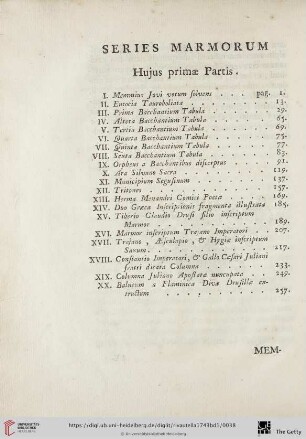 SERIES MARMORUM
Hujus primæ Partis.
I. Memmius Jovi votum solvens . . . pag. 1.
II. Eutocia Tauroboliata . . . . 13.
III. Prima Bacchantium Tabula . . . . 29.
IV. Altera Bacchantium Tabula . . . . 65.
V. Tertia Bacchantium Tabula . . . . 69.
VI. Quarta Bacchantium Tabula . . . . 75.
VII. Quinta Bacchantium Tabula . . . . 77.
VIII. Sexta Bacchantium Tabula . . . . 83.
IX. Orpheus a Bacchantibus discerptus . . 91.
X. Ara Silvano Sacra . . . . 119.
XI. Municipium Segusinum . . . . 137.
XII. Tritones . . . . 157.
XIII. Herma Menandri Comici Poetæ . . . 169.
XIV. Duo Græca Inscriptionis fragmenta illustrata 185.
XV. Tiberio Claudio Drusi filio inscriptum
Marmor . . . . 189.
XVI. Marmor inscriptum Trajano Imperatori . . 207.
XVII. Trajano, Æsculapio, & Hygiæ inscriptum
Saxum . . . . 217.
XVIII. Constantio Imperatori, & Gallo Cæsari Juliani
fratri dicata Columna . . . . 233.
XIX. Columna Juliano Apostatæ nuncupata . . 249.
XX. Balneum a Flaminica Divæ Drusillæ ex-
tructum . . . . 257.
MEM-
UNIVERSITÄTS-
BIBLIOTHEK
HEIDELBERG
https://digi.ub.uni-heidelberg.de/diglit/rivautella1743bd1/0038
© Universitätsbibliothek Heidelberg
The Getty